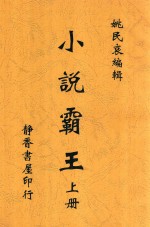 姚民哀編輯
小說霸王
上册
靜香書屋印行